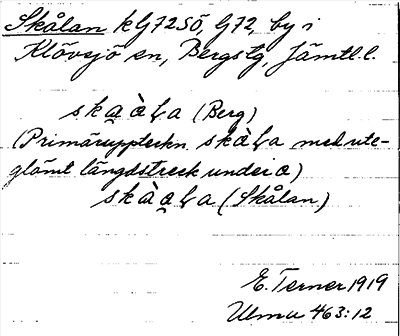 Skålan kG72SÖ, G72, by i
Klövsjö sn, Bergs tg, Jämtl. l.
skа̲àɽa (Berg)
(Primäruppteckn. skàɽa med ute-
glömt längdstreck under a)
skàa̲ɽa (Skålan)
E. Terner 1919
Ulma 463:12